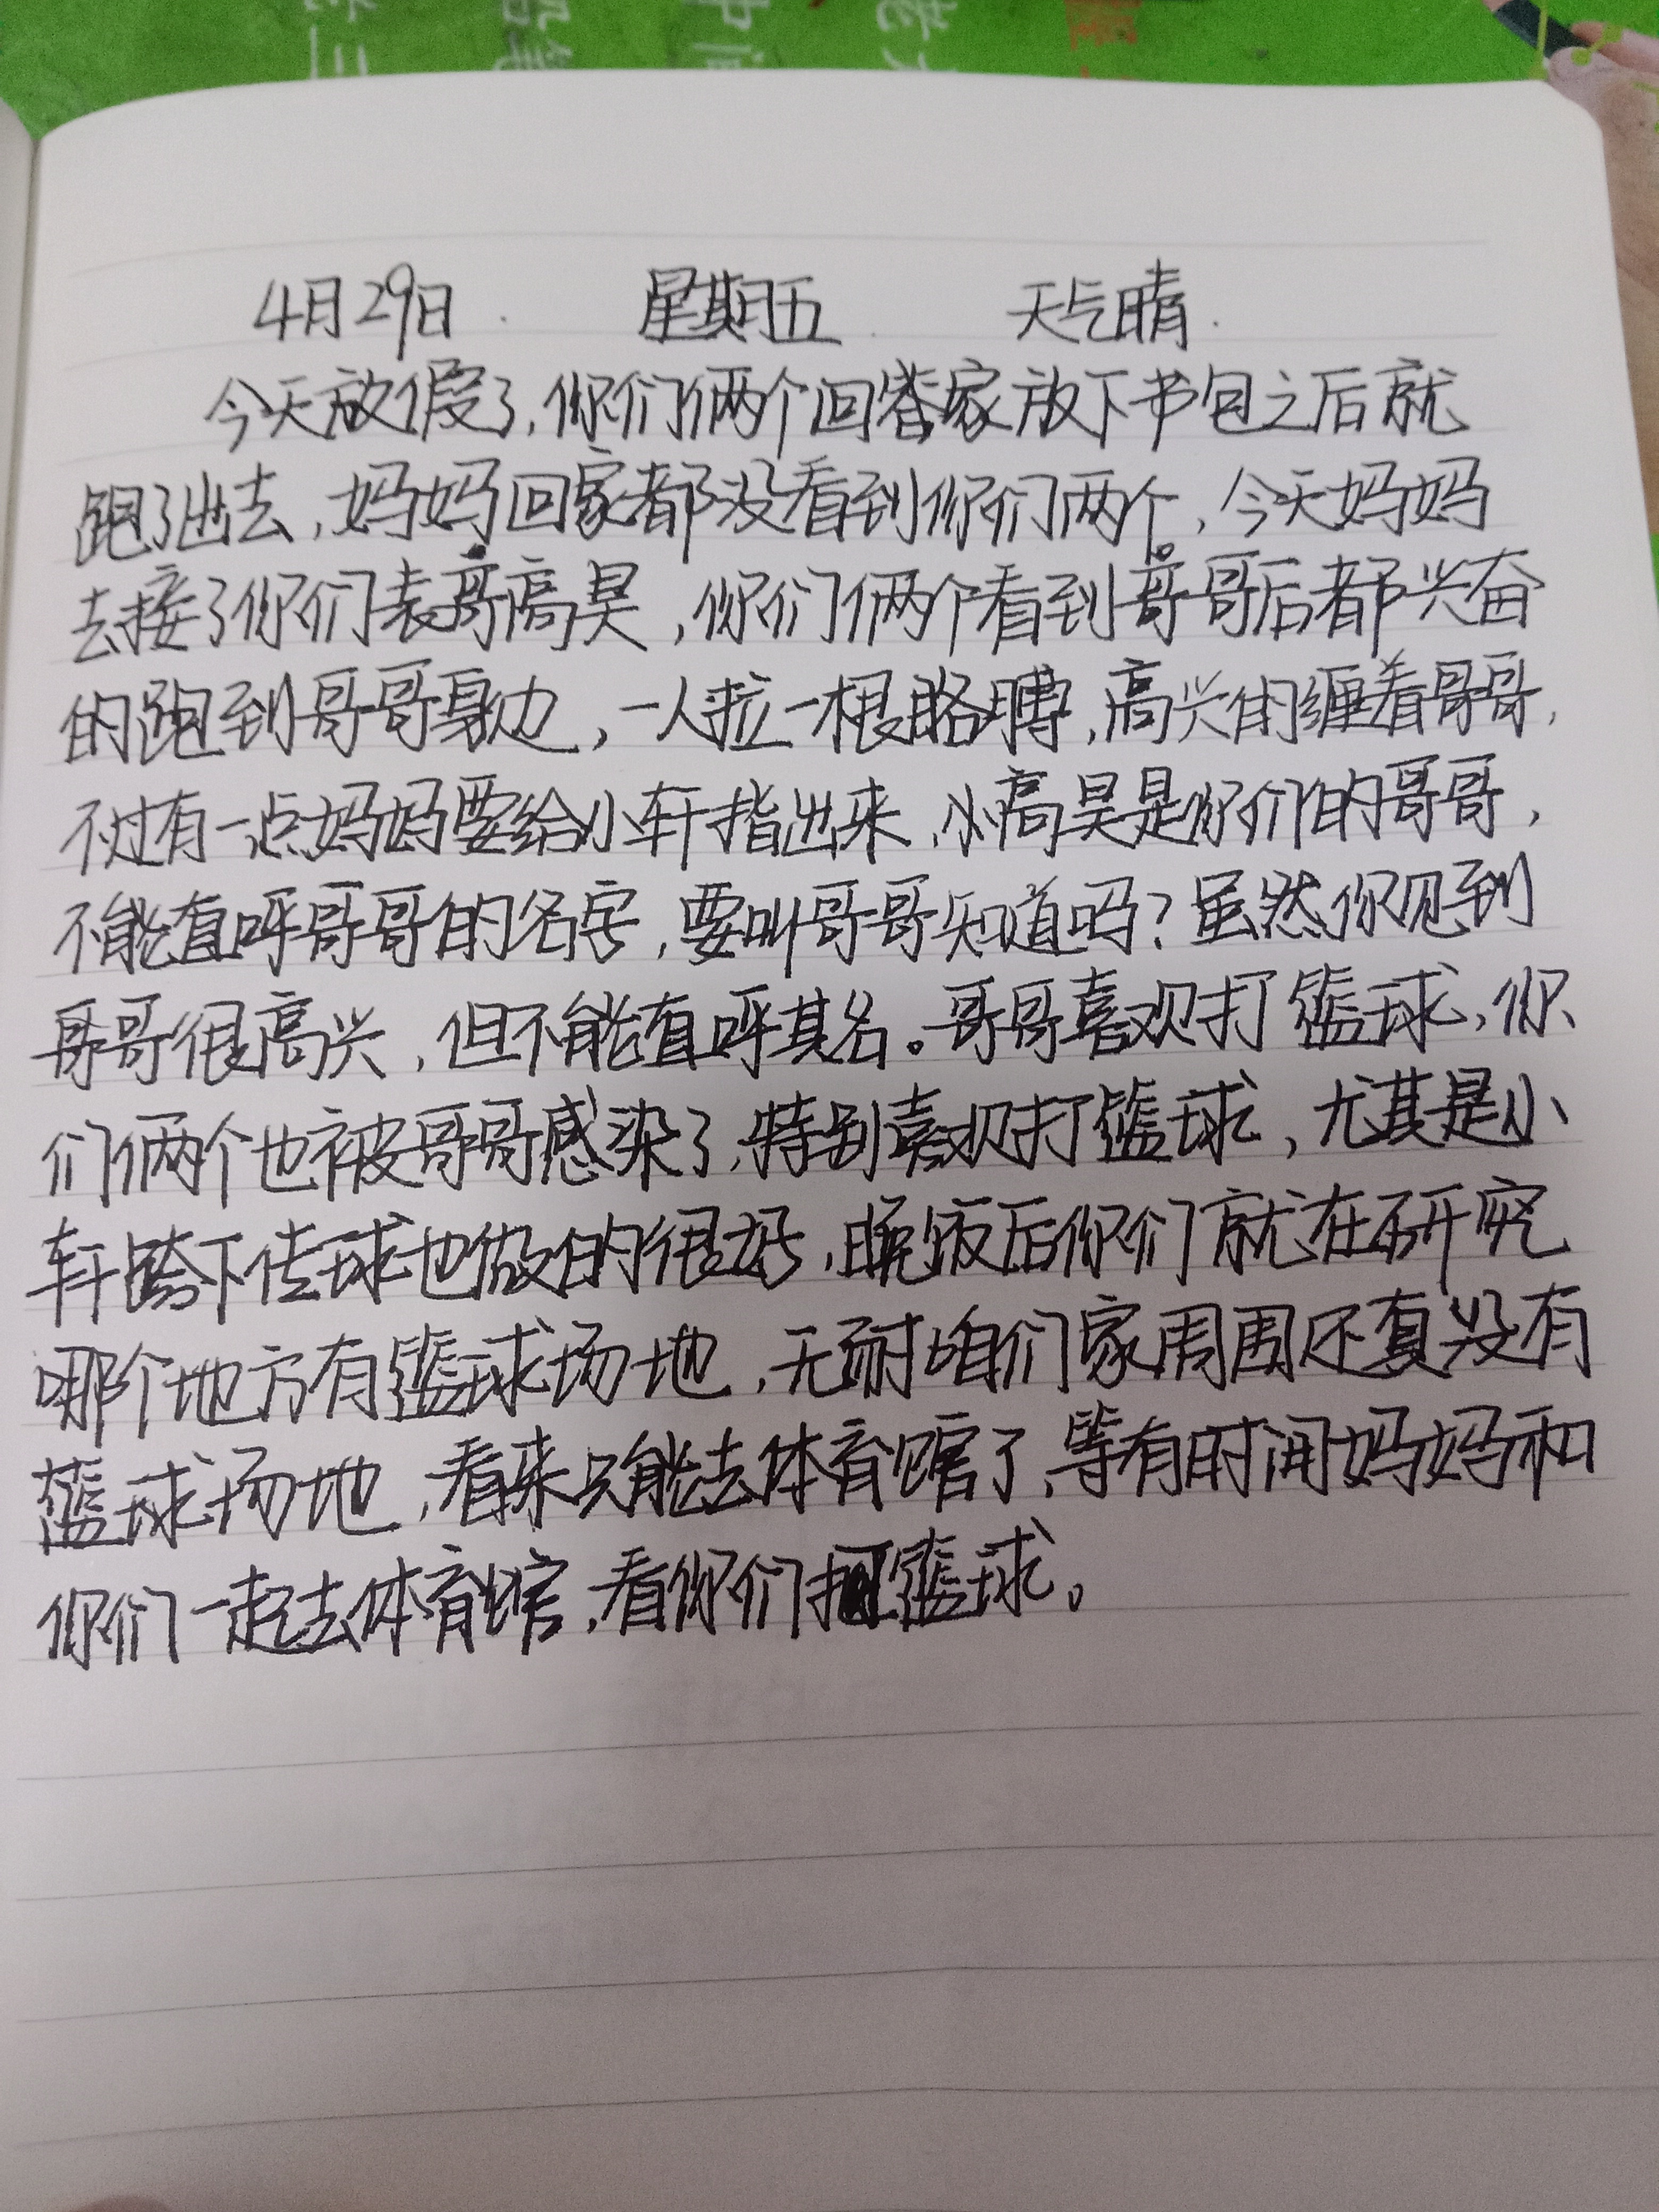 4月29日. 星期五. 天气晴.
今天放假了,你们俩个回家放下书包之后就
跑了出去,妈妈回家都没看到你们两个。,今天妈妈
去接了你们表哥高昊,你们俩个看到哥哥后都兴奋
的跑到哥哥身边,一人拉一根胳膊,高兴的缠着哥哥,
不过有一点妈妈要给小轩指出来,小高昊是你们的哥哥,
不能直呼哥哥的名字,要叫哥哥知道吗?虽然你见到
哥哥很高兴,但不能直呼其名。哥哥喜欢打篮球,你
们俩个也被哥哥感染了,特别喜欢打篮球,尤其是小
轩胯下传球也做的很好,晚饭后你们就在研究
哪个地方有篮球场地,无耐咱们家周围还真没有
篮球场地,看来只能去体育馆了,等有时间妈妈和
你们一起去体育馆,看你们打篮球。